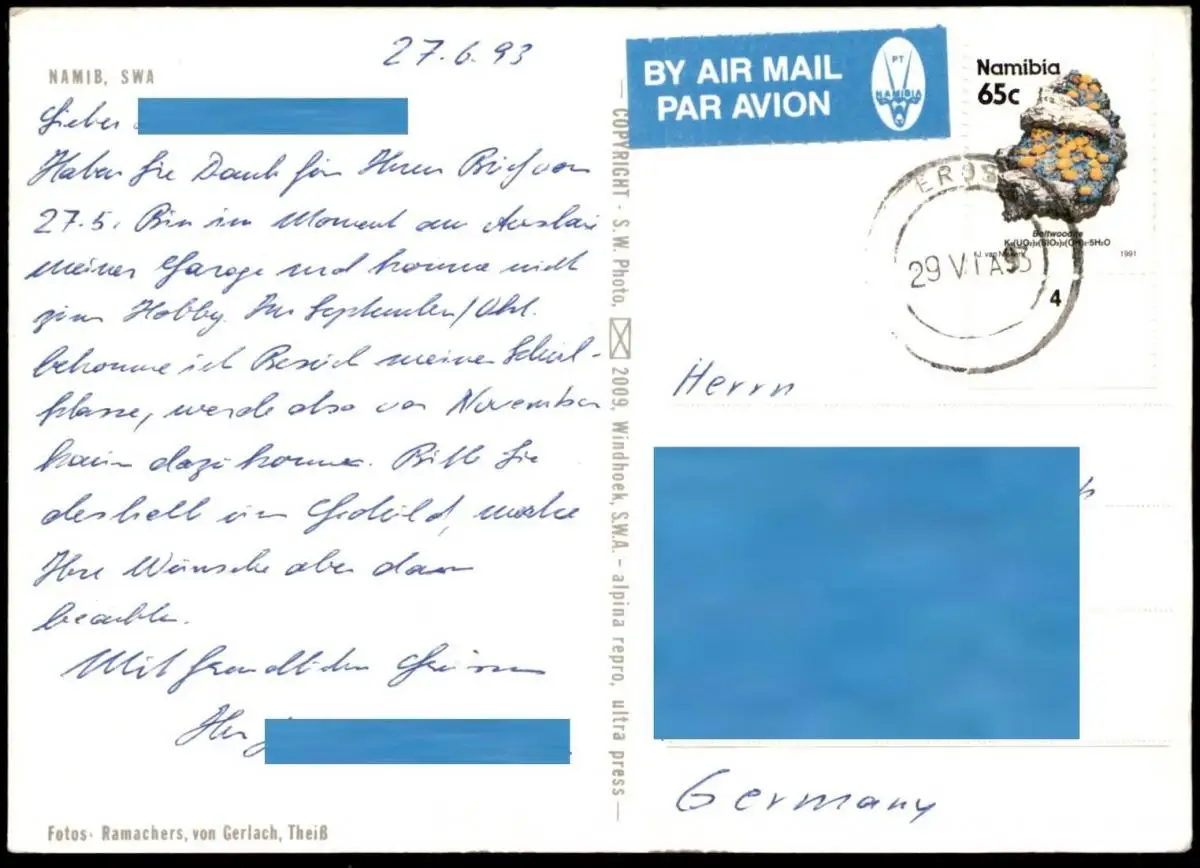 27.6.93
NAMIB, SWA
Lieber
Haben Sie Dank für Ihren Brief vom
27.5. Bin im Moment am
meiner Garage und komme nicht
zum Hobby. Im September/Okt.
bekomme ich Besuch meiner Schul-
klasse, werde also vor November
kaum dazu kommen. Bitte Sie
deshalb um Geduld, werde
Ihre Wünsche aber dann
beachten.
Mit freundlichen Grüssen
Ihr
Fotos· Ramachers, von Gerlach, Theiß
COPYRIGHT · S.W. Photo, 2009, Windhoek, S.W.A. – alpina repro, ultra press
BY AIR MAIL
PAR AVION
PT
NAMIBIA
Namibia
65c
Boltwoodite
1991
EROS
29 VI A 93
4
Herrn
Germany